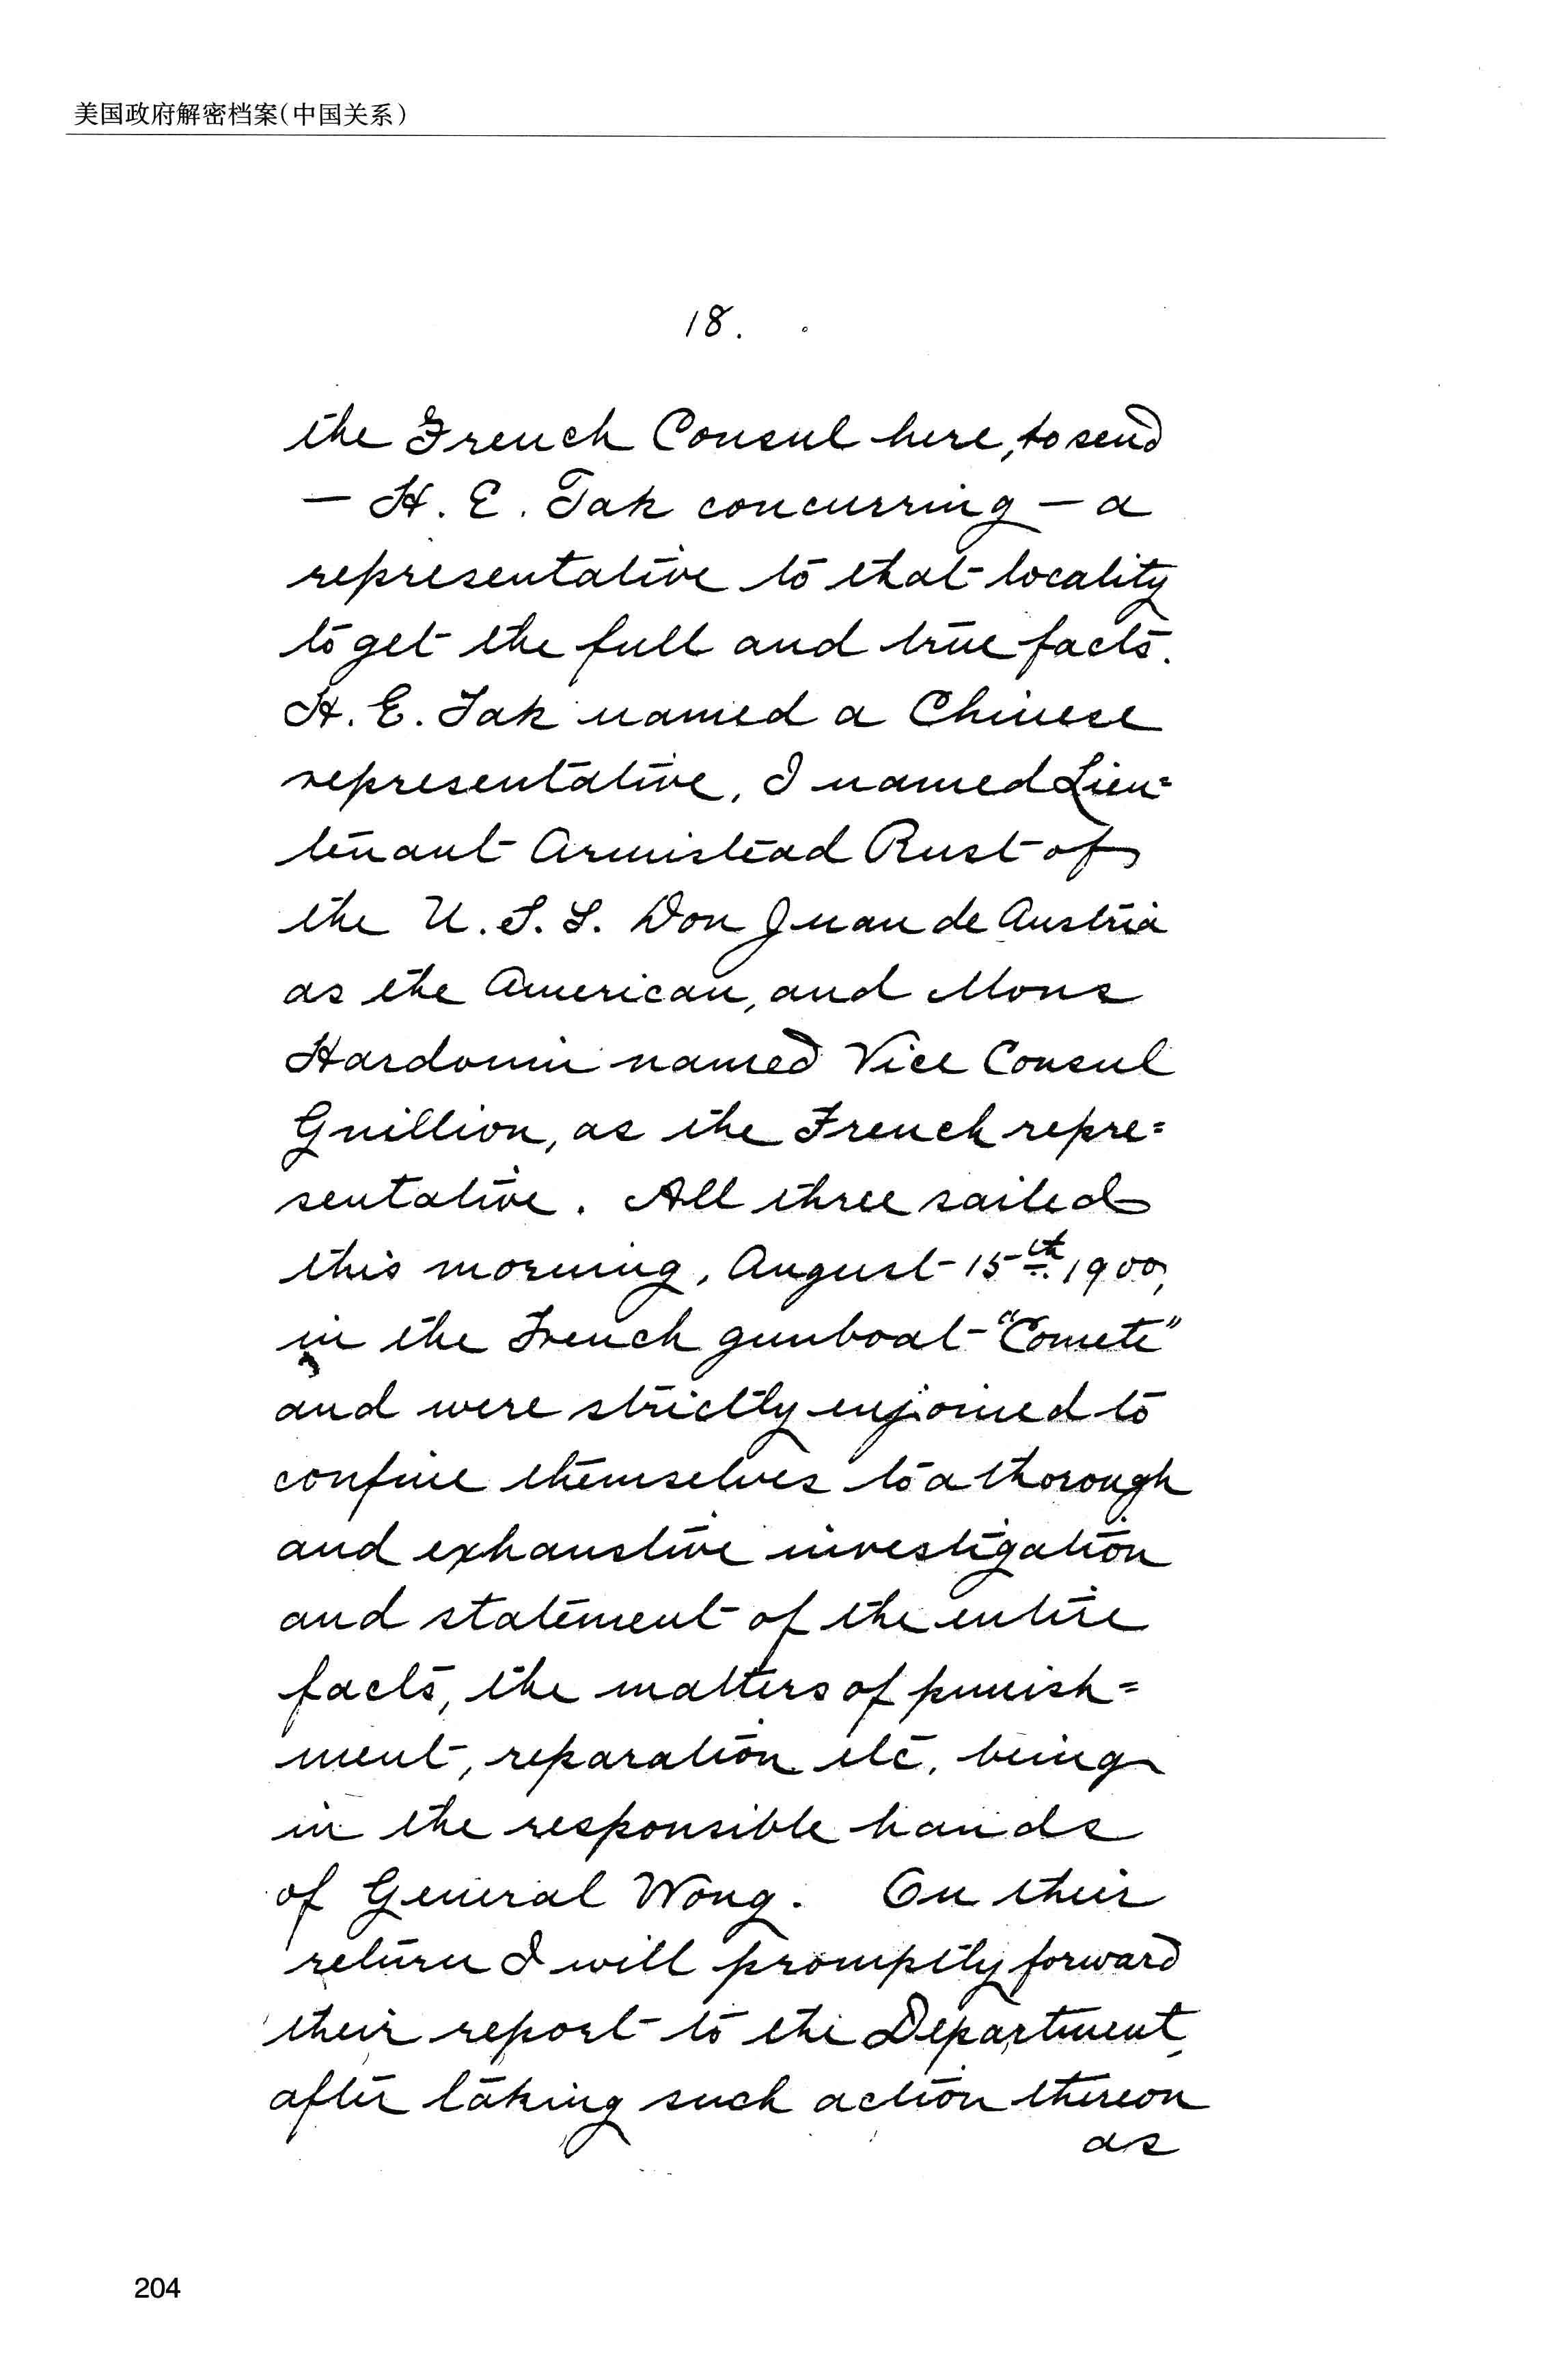 美国政府解密档案(中国关系)
18.
the French Consul here, to send
— H. E. Tak concurring — a
representative to that locality
to get the full and true facts.
H. E. Tak named a Chinese
representative, I named Lieu=
tenant Armistead Rust of
the U. S. S. Don Juan de Austria
as the American, and Mons
Hardouin named Vice Consul
Guillion, as the French repre=
sentative. All three sailed
this morning, August 15th. 1900,
in the French gunboat "Comete"
and were strictly enjoined to
confine themselves to a thorough
and exhaustive investigation
and statement of the entire
facts, the matters of punish=
ment, reparation etc. being
in the responsible hands
of General Wong. On their
return I will promptly forward
their report to the Department,
after taking such action thereon
as
204